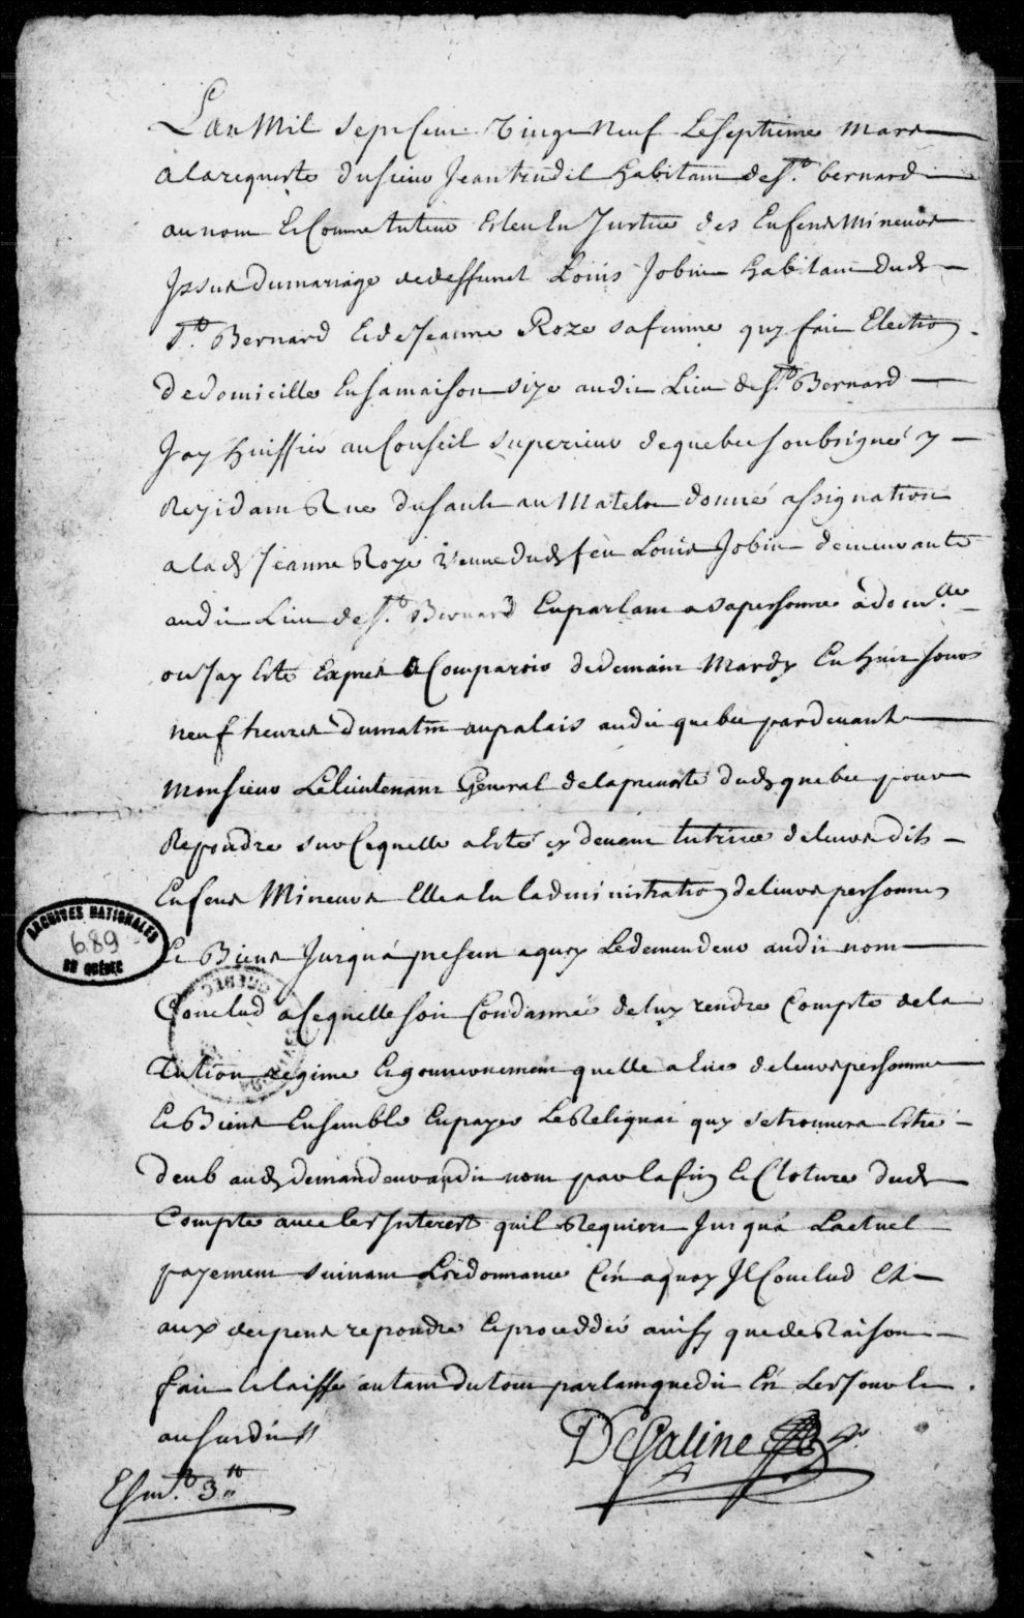 Lan Mil Sept Cent Vingt Neuf Le Septieme Mars
a la requeste du sieur Jean trudel habitant de St. bernard
au nom Et Comme tuteur Esleu En Justice des Enfens Mineurs
Issus du mariage de deffunct Louis Jobin habitant dud
St. Bernard Et de Jeanne Roze sa femme quy fait Election
de domicille En sa maison size audit Lieu de St. Bernard
Jay huissier au Conseil superieur de quebec soubsigné y
Rezidant Rue du Sault au Matelot donné assignation
a lad Jeanne Roze veuve dud feu Louis Jobin demeurante
audit Lieu de St. Bernard En parlant a sa personne à domlle
ou Jay Esté Exprés a Comparoir de demain Mardy En huit Jours
neuf heures du matin au palais audit quebec pardevant
Monsieur Le lieutenant General de la prevosté dud quebec pour
Repondre sur Ce quelle a Esté cy devant tutrice de leurs dits
Enfens Mineurs Elle a Eu ladministration de leurs personnes
Et Biens Jusqu'á present a quoy Le demendeur audit nom
Conclud a Ce quelle soit Condamnée de luy rendre Compte de la
Tution regime Et gouvernement quelle a Eue de leurs personnes
Et Biens Ensemble En payer Le Reliquat quy se trouvera Estre
deub aud demandeur audit nom par la fin Et Cloture dud
Compte avec les Interest quil Requiere Jusqu'á Lactuel
payement suivant Lordonnance Cén a quoy Il Conclud Et
aux depens repondre Et procedder ainsy que de Raison
fait Et laissé autant du tout parlant que dit Est Les Jour et an
au susdits
DeSaline
Esmt. 3tt
ARCHIVES NATIONALES
689
DU QUÉBEC